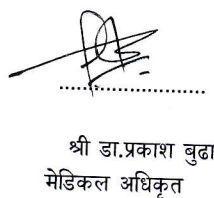 श्री डा.प्रकाश बुढा
मेडिकल अधिकृत